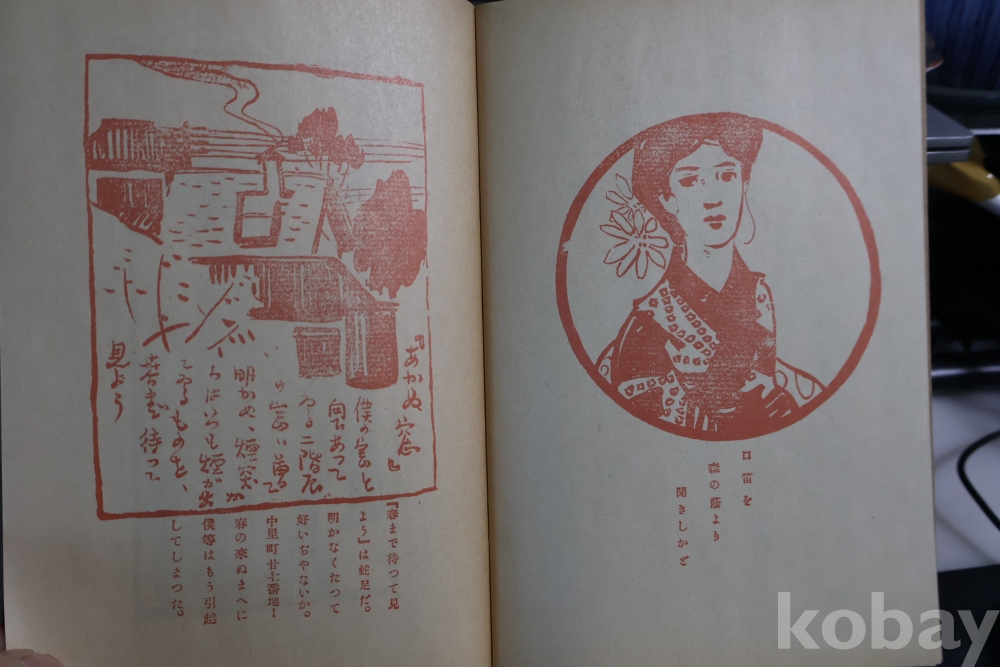 口笛を
森の蔭より
聞きしかど
『あかぬ窓』
僕の窓と
向あつて
ゐる二階家
の窓は曽て
明かぬ、煙突か
らはいつも煙が出
てゐるものを、
春まで待つて
見よう
『春まで待つて見
よう』は蛇足だ。
明かなくたつて
好いぢやないか。
中里町廿七番地ー
春の來ぬまへに
僕等はもう引越
してしまつた。
kobay